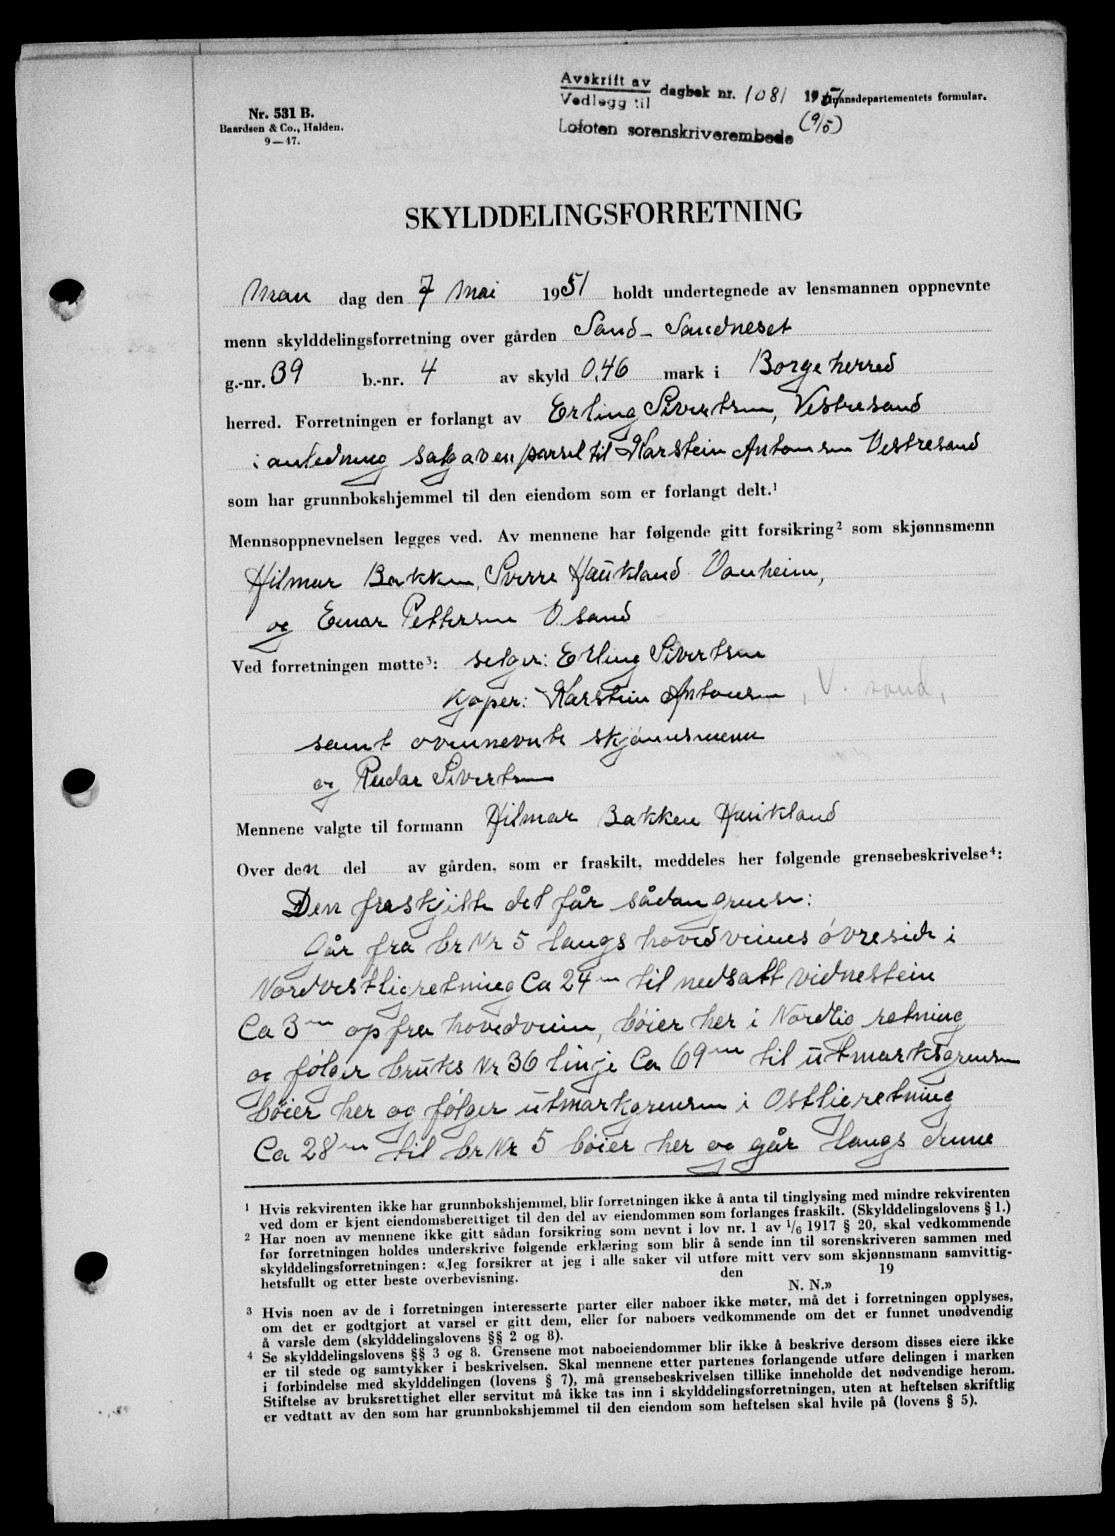 Nr. 531 B.
Baardsen & Co., Halden.
9—47.
Avskrift av
Vedlegg til dagbok nr. 1081 1951 Finansdepartementets formular.
Lofoten sorenskriverembede (9/5)
SKYLDDELINGSFORRETNING
Man dag den 7 mai 1951 holdt undertegnede av lensmannen oppnevnte
menn skylddelingsforretning over gården Sand - Sandneset
g.-nr. 39 b.-nr. 4 av skyld 0,46 mark i Borge herred
herred. Forretningen er forlangt av Erling Sivertsen, Vestresand
i anledning salg av en parsel til Karstein Antonsen Vestresand
som har grunnbokshjemmel til den eiendom som er forlangt delt.¹
Mennsoppnevnelsen legges ved. Av mennene har følgende gitt forsikring² som skjønnsmenn
Hilmar Bakken, Sverre Haukland Vanheim,
og Einar Pettersen V. sand
Ved forretningen møtte³: selger: Erling Sivertsen
Kjøper: Karstein Antonsen, V. sand,
samt ovennevnte skjønnsmenn
og Reidar Sivertsen
Mennene valgte til formann Hilmar Bakken Haukland
Over den del av gården, som er fraskilt, meddeles her følgende grensebeskrivelse⁴:
Den fraskjilte del får sådan grense:
Går fra br Nr 5 langs hovedveiens øvreside i
Nordvestlig retning Ca 24 m til nedsatt vidnestein
Ca 3 m op fra hovedveien, bøier her i Nordlig retning
og følger bruks Nr 36 linje Ca 69 m til utmarksgrensen
bøier her og følger utmarkgrensen i Østlig retning
Ca 28 m til br Nr 5 bøier her og går langs denne
¹ Hvis rekvirenten ikke har grunnbokshjemmel, blir forretningen ikke å anta til tinglysing med mindre rekvirenten
ved dom er kjent eiendomsberettiget til den del av eiendommen som forlanges fraskilt. (Skylddelingslovens § 1.)
² Har noen av mennene ikke gitt sådan forsikring som nevnt i lov nr. 1 av 1/6 1917 § 20, skal vedkommende
før forretningen holdes underskrive følgende erklæring som blir å sende inn til sorenskriveren sammen med
skylddelingsforretningen: «Jeg forsikrer at jeg i alle saker vil utføre mitt verv som skjønnsmann samvittig-
hetsfullt og etter beste overbevisning. den 19
N. N.»
³ Hvis noen av de i forretningen interesserte parter eller naboer ikke møter, må det i forretningen opplyses,
om det er godtgjort at varsel er gitt dem, eller for naboers vedkommende om det er funnet unødvendig
å varsle dem (skylddelingslovens §§ 2 og 8).
⁴ Se skylddelingslovens §§ 3 og 8. Grensene mot naboeiendommer blir ikke å beskrive dersom disses eiere ikke
er til stede og samtykker i beskrivelsen. Skal mennene etter partenes forlangende utføre delingen i marken
i forbindelse med skylddelingen (lovens § 7), må grensebeskrivelsen tillike inneholde det nødvendige herom.
Stiftelse av bruksrettighet eller servitut må ikke tas inn i skylddelingsforretningen, uten at heftelsen skriftlig
er vedtatt av den som har grunnbokshjemmel til den eiendom som heftelsen skal hvile på (lovens § 5).